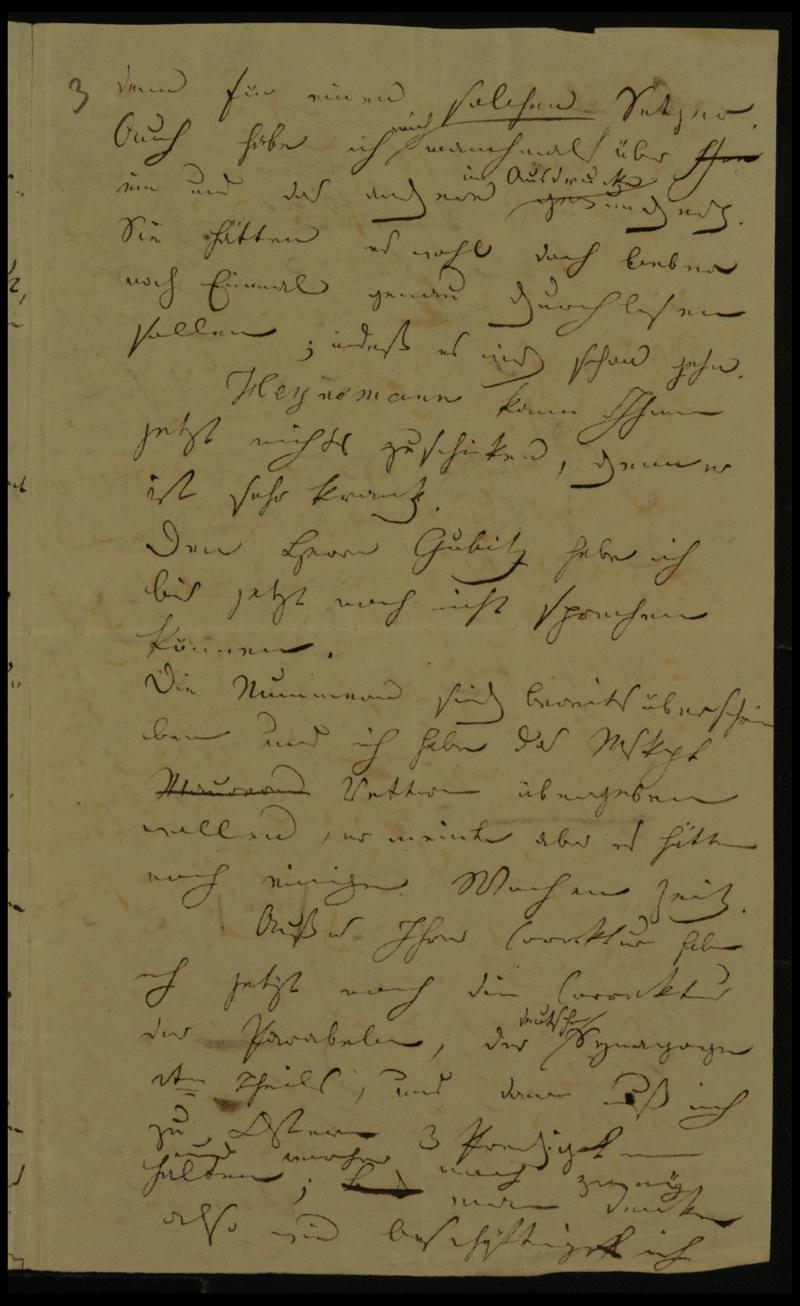 3 denn für einen solchen Setzer.
Auch habe ich mich manchmal über
ein und das andere im Ausdrucke
Sie hätten es wohl doch lieber
noch Einmal genau durchlesen
sollen; indeß es wird schon gehn.
Heynemann kann Ihnen
jetzt nichts zuschicken, denn er
ist sehr krank.
Den Herrn Gubitz habe ich
bis jetzt noch nicht sprechen
können.
Die Nummern sind bereits überschrie
ben und ich habe das Mskpt
Vettern übergeben
wollen, er meinte aber es hätte
noch einige Wochen Zeit.
Außer Ihrer Correktur habe
ich jetzt noch die Correktur
der Parabeln, der deutschen Synagoge
Theils, und dann muß ich
zu Ostern 3 Predigten
halten; und vorher noch
man denke
also wie beschäftigt ich